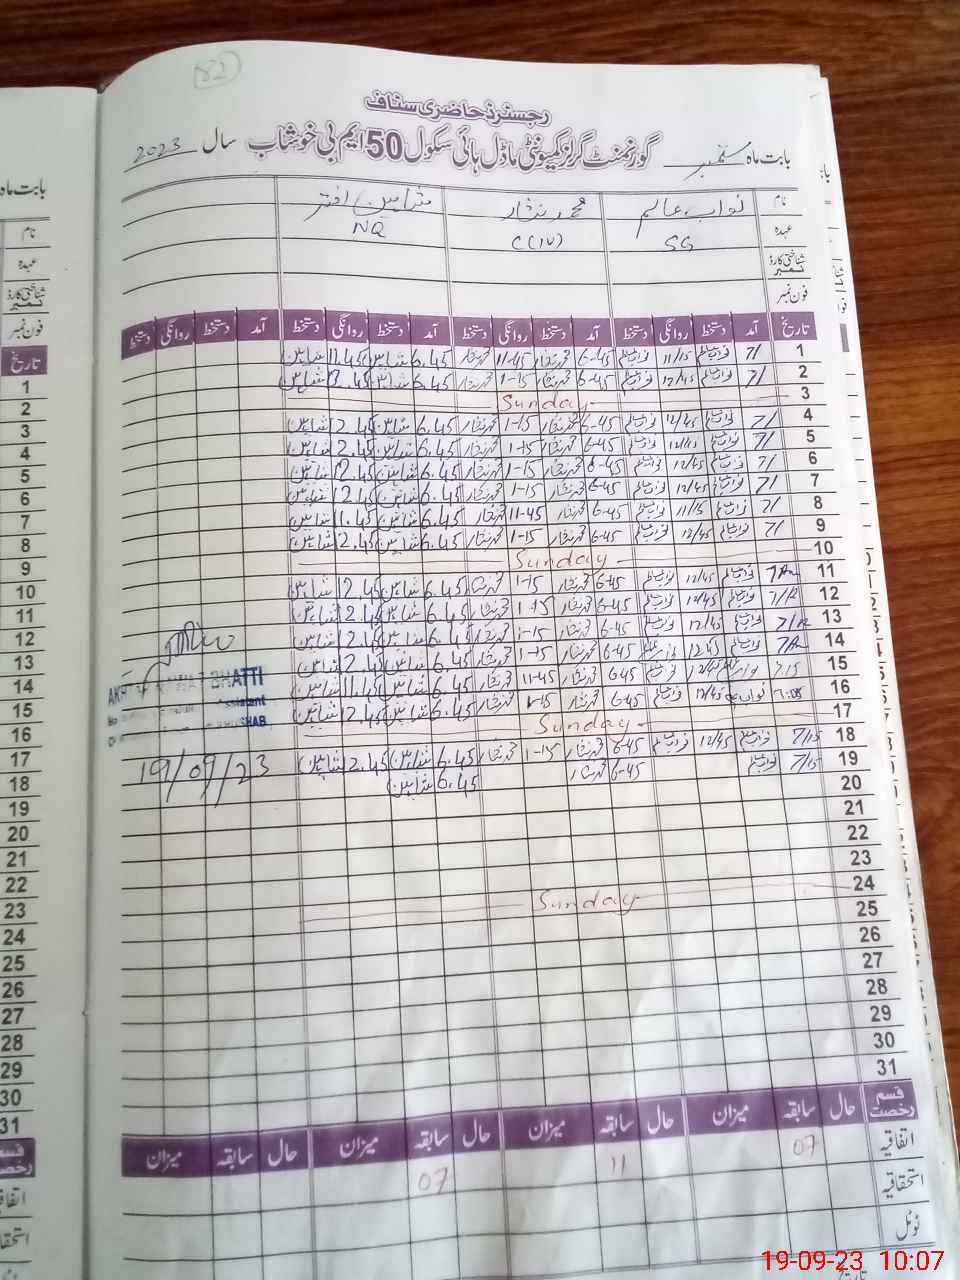 82
رجسٹرڈ حاضری سٹاف
بابت ماہ ستمبر گورنمنٹ گرلز کمیونٹی ماڈل ہائی سکول 50 ایم بی خوشاب سال 2023
نام نواب عالم محمد نثار شاہین اختر
عہدہ SG C(IV) NQ
شناختی کارڈ نمبر
فون نمبر
تاریخ آمد دستخط روانگی دستخط آمد دستخط روانگی دستخط آمد دستخط روانگی دستخط آمد دستخط روانگی دستخط
1 7/ نواب عالم 11/15 نواب عالم 6-45 محمد نثار 11-45 محمد نثار 6.45 شاہین 11.45 شاہین
2 7/ نواب عالم 12/45 نواب عالم 6-45 محمد نثار 1-15 محمد نثار 6.45 شاہین شاہین
3 Sunday
4 7/ نواب عالم 12/45 نواب عالم 6-45 محمد نثار 1-15 محمد نثار 6.45 شاہین 12.45 شاہین
5 7/ نواب عالم 12/45 نواب عالم 6-45 محمد نثار 1-15 محمد نثار 6.45 شاہین 12.45 شاہین
6 7/ نواب عالم 12/45 نواب عالم 6-45 محمد نثار 1-15 محمد نثار 6.45 شاہین 12.45 شاہین
7 7/ نواب عالم 12/45 نواب عالم 6-45 محمد نثار 1-15 محمد نثار 6.45 شاہین 12.45 شاہین
8 7/ نواب عالم 11/15 نواب عالم 6-45 محمد نثار 11-45 محمد نثار 6.45 شاہین 11.45 شاہین
9 7/ نواب عالم 12/45 نواب عالم 6-45 محمد نثار 1-15 محمد نثار 6.45 شاہین 12.45 شاہین
10 Sunday
11 نواب عالم 12/45 نواب عالم 6-45 محمد نثار 1-15 محمد نثار 6.45 شاہین 12.45 شاہین
12 نواب عالم 12/45 نواب عالم 6-45 محمد نثار 1-15 محمد نثار 6.45 شاہین 12.45 شاہین
13 نواب عالم 12/45 نواب عالم 6-45 محمد نثار 1-15 محمد نثار 6.45 شاہین 12.45 شاہین
14 نواب عالم 12/45 نواب عالم 6-45 محمد نثار 1-15 محمد نثار 6.45 شاہین 12.45 شاہین
15 7.15 6-45 محمد نثار 11-45 محمد نثار 6.45 شاہین 11.45 شاہین
16 نواب 12/45 نواب عالم 6-45 محمد نثار 1-15 محمد نثار 6.45 شاہین 12.45 شاہین
17 Sunday
18 7/15 نواب عالم 12/45 نواب عالم 6-45 محمد نثار 1-15 محمد نثار 6.45 شاہین 12.45 شاہین
19 7/15 نواب عالم 6-45 محمد نثار 6.45 شاہین
20
21
22
23
24 Sunday
25
26
27
28
29
30
31
BHATTI
19/09/23
قسم رخصت حال سابقہ میزان حال سابقہ میزان حال سابقہ میزان حال سابقہ میزان
اتفاقیہ 07 11 07
استحقاقیہ
ٹوٹل
بابت ماہ
نام
عہدہ
شناختی کارڈ نمبر
فون نمبر
تاریخ
1
2
3
4
5
6
7
8
9
10
11
12
13
14
15
16
17
18
19
20
21
22
23
24
25
26
27
28
29
30
31
قسم رخصت
19-09-23 10:07